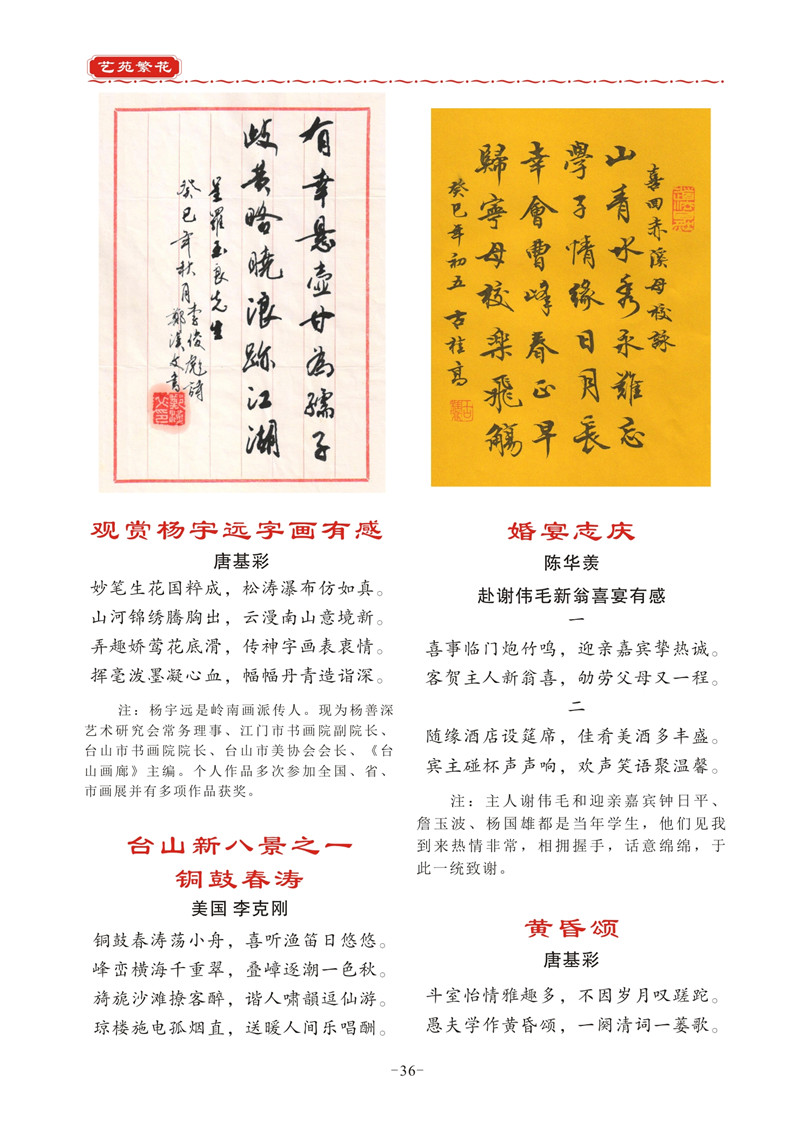 艺苑繁花
有幸悬壶甘为孺子
歧黄略晓浪跡江湖
呈羅玉良先生
癸巳年秋月李俊彪詩
鄭漢文書
喜回赤溪母校詠
山青水秀永難忘
學子情缘日月長
幸會曹峰春正早
歸寧母校樂飛觴
癸巳年初五 古桂高
观赏杨宇远字画有感
唐基彩
妙笔生花国粹成，松涛瀑布仿如真。
山河锦绣腾胸出，云漫南山意境新。
弄趣娇莺花底滑，传神字画表衷情。
挥毫泼墨凝心血，幅幅丹青造诣深。
注：杨宇远是岭南画派传人。现为杨善深
艺术研究会常务理事、江门市书画院副院长、
台山市书画院院长、台山市美协会会长、《台
山画廊》主编。个人作品多次参加全国、省、
市画展并有多项作品获奖。
台山新八景之一
铜鼓春涛
美国 李克刚
铜鼓春涛荡小舟，喜听渔笛日悠悠。
峰峦横海千重翠，叠嶂逐潮一色秋。
旖旎沙滩撩客醉，谐人啸韻逗仙游。
琼楼施电孤烟直，送暖人间乐唱酬。
婚宴志庆
陈华羡
赴谢伟毛新翁喜宴有感
一
喜事临门炮竹鸣，迎亲嘉宾挚热诚。
客賀主人新翁喜，劬劳父母又一程。
二
随缘酒店设筵席，佳肴美酒多丰盛。
宾主碰杯声声响，欢声笑语聚温馨。
注：主人谢伟毛和迎亲嘉宾钟日平、
詹玉波、杨国雄都是当年学生，他们见我
到来热情非常，相拥握手，话意绵绵，于
此一统致谢。
黄昏颂
唐基彩
斗室怡情雅趣多，不因岁月叹蹉跎。
愚夫学作黄昏颂，一阕清词一蒌歌。
-36-